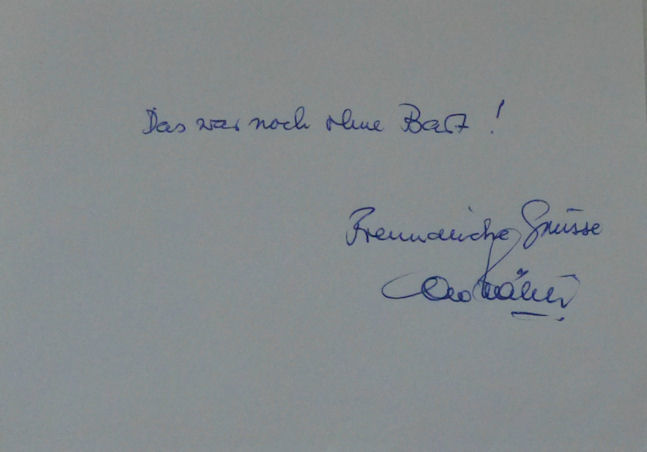 Das war noch ohne Bart !
Freundliche Grüsse